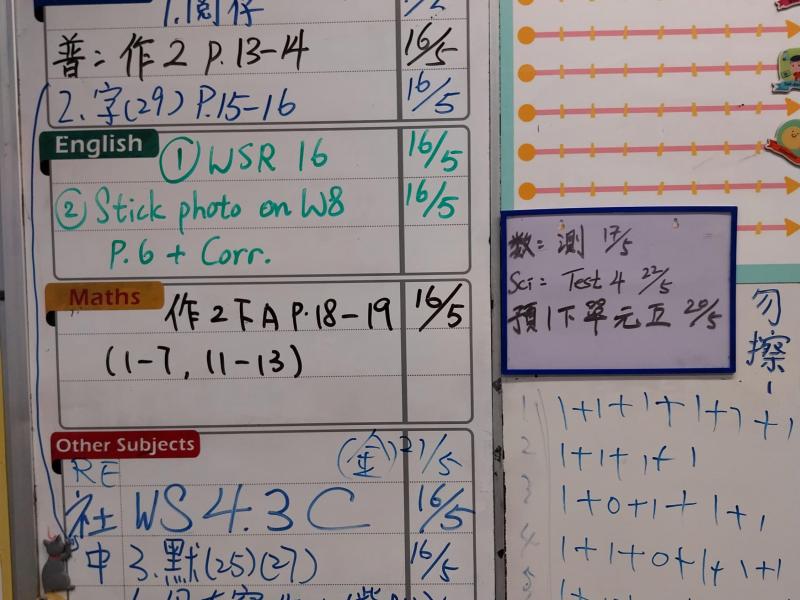 1.閱
普: 作2 P.13-14 16/5
2.字(29) P.15-16 16/5
English
① WSR 16 16/5
② Stick photo on W8 16/5
P.6 + Corr.
Maths
作2下A P.18-19 16/5
(1-7, 11-13)
Other Subjects
RE (金) 21/5
社 WS 4.3 C 16/5
中 3.默(25)(27) 16/5
数: 測 17/5
Sci: Test 4 22/5
預1下單元五 20/5
勿擦
1. 1+1+1+1+1+1
2 1+1+1+1
3 1+0+1+1+1
4 1+1+0+1+1+1
5